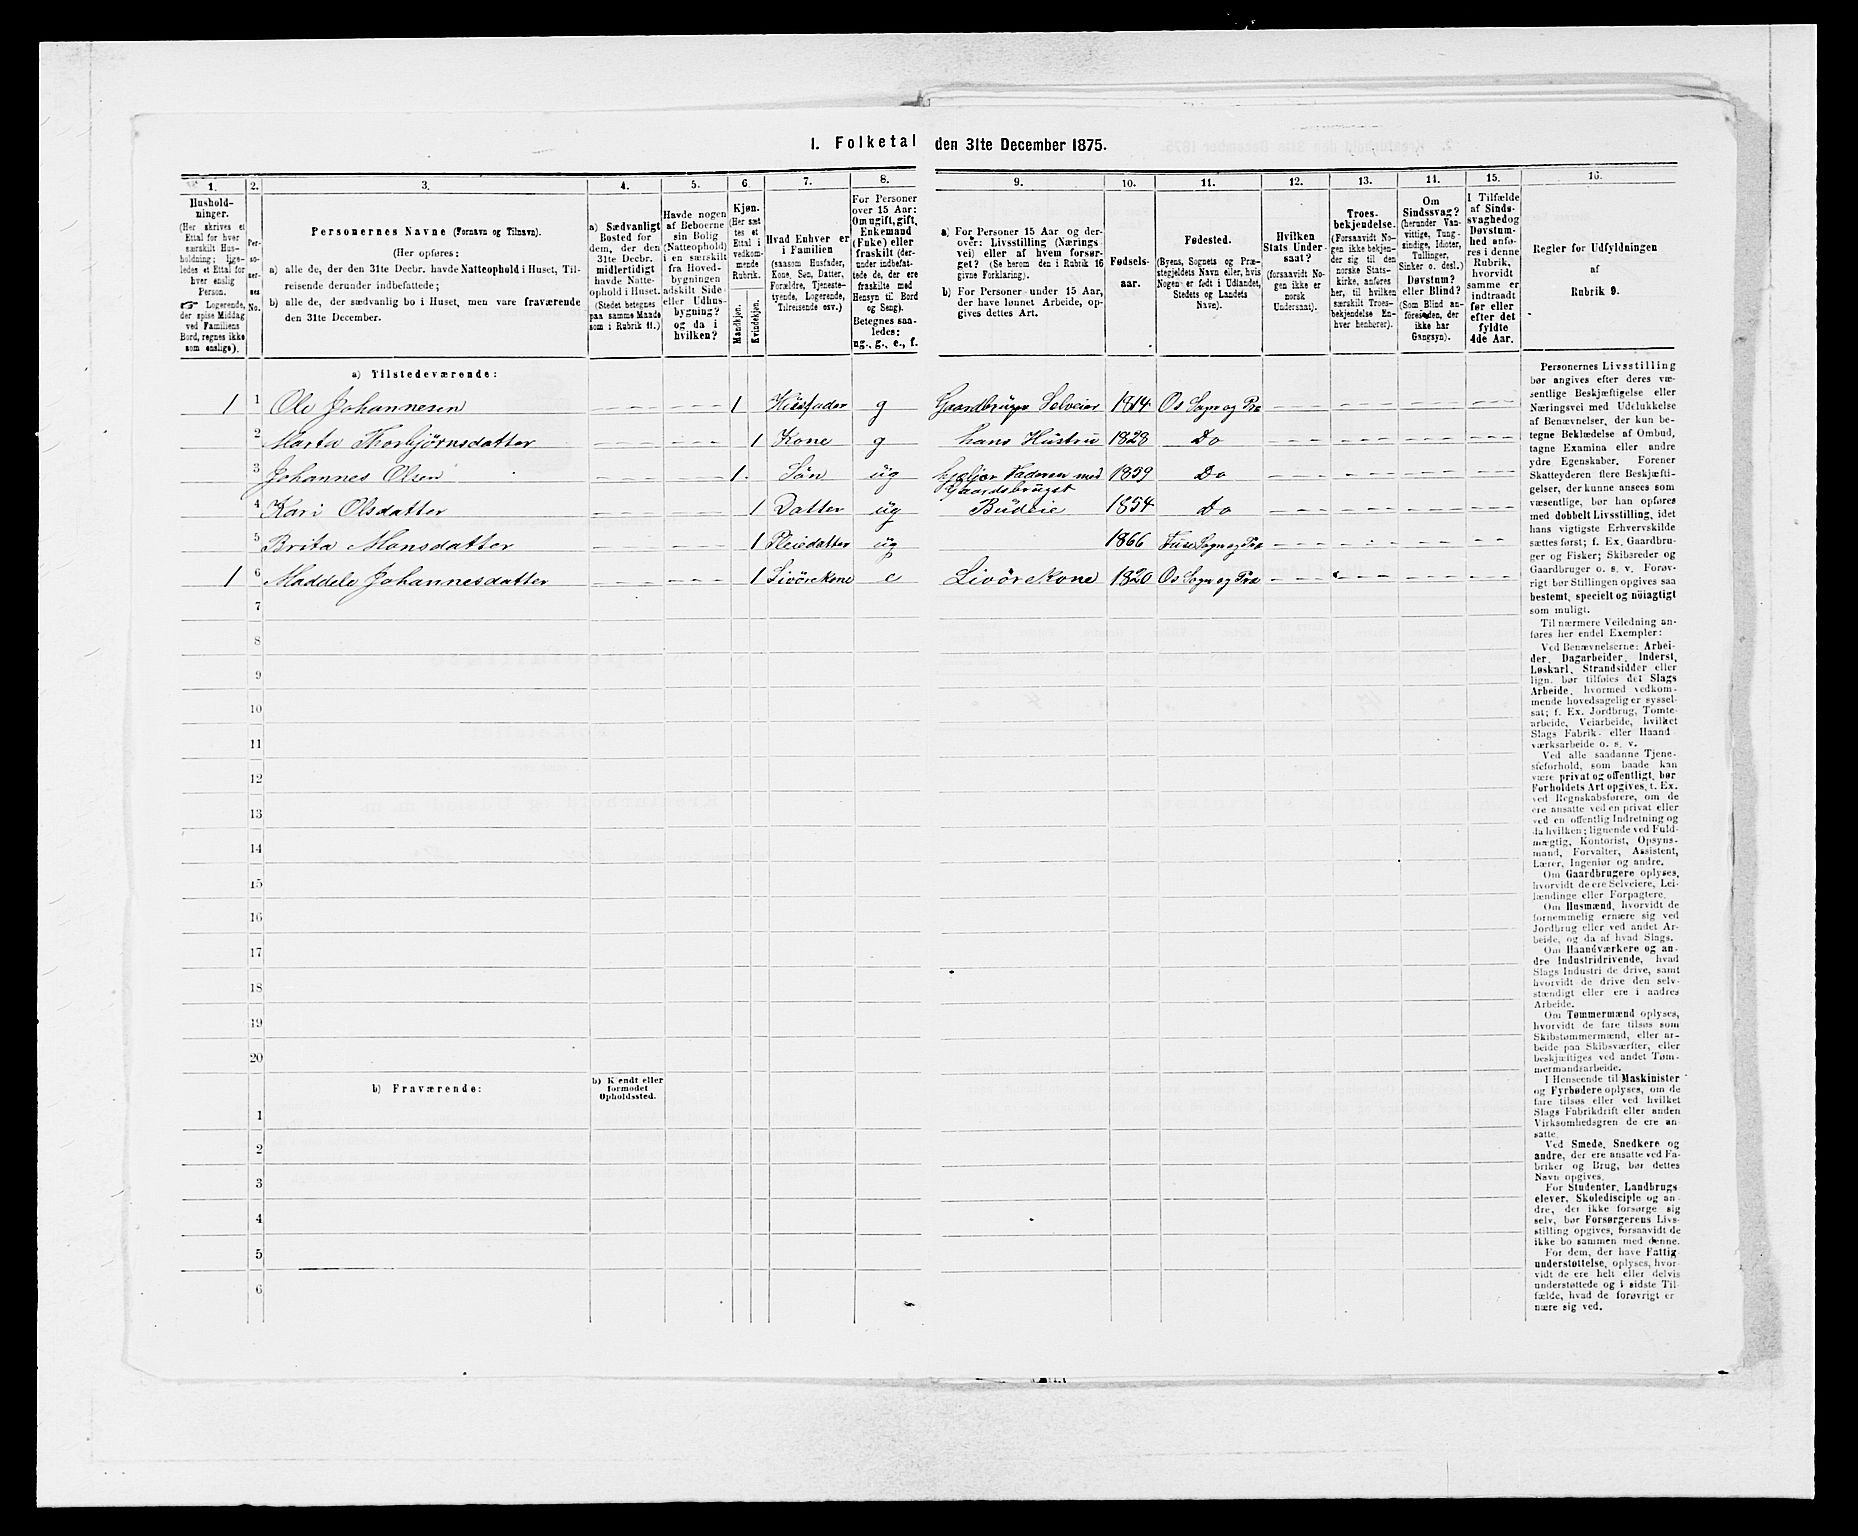 1. Folketal den 31te December 1875.
1. 2. 3. 4. 5. 6. 7. 8. 9. 10. 11. 12. 13. 14. 15. 16.
Hushold-
ninger.
(Her skrives et
Ettal for hver
særskilt Hus-
holdning; lige-
ledes et Ettal for
hver enslig
Person.
☞ Logerende,
der spise Middag
ved Familiens
Bord, regnes ikke
som enslige).
Per-
so-
ner-
nes
No.
Personernes Navne (Fornavn og Tilnavn).
(Her opføres:
a) alle de, der den 31te Decbr. havde Natteophold i Huset, Til-
reisende derunder indbefattede;
b) alle de, der sædvanlig bo i Huset, men vare fraværende
den 31te December.
a) Sædvanligt
Bosted for
dem, der den
31te Decbr.
midlertidigt
havde Natte-
ophold i Huset.
(Stedet betegnes
paa samme Maade
som i Rubrik 11.)
Havde nogen
af Beboerne
sin Bolig
(Natteophold)
i en særskilt
fra Hoved-
bygningen
adskilt Side-
eller Udhus-
bygning?
og da i
hvilken?
Kjøn.
(Her sæt-
tes et
Ettal i
vedkom-
mende
Rubrik.
Mandkjøn.
Kvindekjøn.
Hvad Enhver er
i Familien
(saasom Husfader,
Kone, Søn, Datter,
Forældre, Tjeneste-
tyende, Logerende,
Tilreisende osv.)
For Personer
over 15 Aar:
Om ugift, gift,
Enkemand
(Enke) eller
fraskilt (der-
under indbefat-
tede de, der ere
fraskilte med
Hensyn til Bord
og Seng).
Betegnes saa-
ledes:
ug., g., e., f.
a) For Personer 15 Aar og der-
over: Livsstilling (Nærings-
vei) eller af hvem forsør-
get? (Se herom den i Rubrik 16
givne Forklaring).
b) For Personer under 15 Aar,
der have lønnet Arbeide, op-
gives dettes Art.
Fødsels-
aar.
Fødested.
(Byens, Sognets og Præ-
stegjeldets Navn eller, hvis
Nogen er født i Udlandet,
Stedets og Landets
Navn).
Hvilken
Stats Under-
saat?
(forsaavidt No-
gen ikke er
norsk
Undersaat).
Troes-
bekjendelse.
(Forsaavidt No-
gen ikke bekjen-
der sig til den
norske Stats-
kirke, anføres
her, til hvilken
særskilt Troes-
bekjendelse En-
hver henhører).
Om
Sindssvag?
(herunder Van-
vittige, Tung-
sindige, Idioter,
Tullinger,
Sinker o. desl.)
Døvstum?
eller Blind?
(Som Blind an-
føres den, der
ikke har
Gangsyn).
I Tilfælde
af Sinds-
svaghed og
Døvstum-
hed anfø-
res i denne
Rubrik,
hvorvidt
samme er
indtraadt
før eller
efter det
fyldte
4de Aar.
Regler for Udfyldningen
af
Rubrik 9.
a) Tilstedeværende:
1 1 Ole Johannesen 1 Husfader g Gaardbruger Selveier 1814 Os Sogn og Præ
2 Marta Thorbjörnsdatter 1 Kone g hans Hustru 1828 Do
3 Johannes Olsen 1 Sön ug hjelper Faderen med Gaardsbruget 1859 Do
4 Kari Olsdatter 1 Datter ug Budeie 1854 Do
5 Brita Monsdatter 1 Pleiedatter ug 1866 Fuse Sogn og Præ
1 6 Maddele Johannesdatter 1 Livörekone e Livörekone 1820 Os Sogn og Præ
7
8
9
10
11
12
13
14
15
16
17
18
19
20
b) Fraværende:
b) Kendt eller
formodet
Opholdssted.
1
2
3
4
5
6
Personernes Livsstilling
bør angives efter deres væ-
sentlige Beskjæftigelse eller
Næringsvei med Udelukkelse
af Benævnelser, der kun be-
tegne Beklædelse af Ombud,
tagne Examina eller andre
ydre Egenskaber. Forener
Skatteyderen flere Beskjæfti-
gelser, der kunne ansees som
væsentlige, bør han opføres
med dobbelt Livsstilling, idet
hans vigtigste Erhvervskilde
sættes først; f. Ex. Gaardbru-
ger og Fisker; Skibsreder og
Gaardbruger o. s. v. Forøv-
rigt bør Stillingen opgives saa
bestemt, specielt og nöiagtigt
som muligt.
Til nærmere Veiledning an-
føres her endel Exempler:
Ved Benævnelserne: Arbei-
der, Dagarbeider, Inderst,
Løskarl, Strandsidder eller
lign. bør tilføies det Slags
Arbeide, hvormed vedkom-
mende hovedsagelig er syssel-
sat; f. Ex. Jordbrug, Tomte-
arbeide, Veiarbeide, hvilket
Slags Fabrik- eller Haand-
værksarbeide o. s. v.
Ved alle saadanne Tjene-
steforhold, som baade kan
være privat og offentligt, bør
Forholdets Art opgives, t. Ex.
ved Regnskabsførere, om de
ere ansatte ved en privat eller
ved en offentlig Indretning og
da hvilken; lignende ved Fuld-
mægtig, Kontorist, Opsyns-
mand, Forvalter, Assistent,
Lærer, Ingeniør og andre.
Om Gaardbrugere oplyses,
hvorvidt de ere Selveiere, Lei-
lændinge eller Forpagtere.
Om Husmænd, hvorvidt de
fornemmelig ernære sig ved
Jordbrug eller ved andet Ar-
beide, og da af hvad Slags.
Om Haandværkere og an-
dre Industridrivende, hvad
Slags Industri de drive, samt
hvorvidt de drive den selv-
stændigt eller ere i andres
Arbeide.
Om Tømmermænd oplyses,
hvorvidt de fare tilsøs som
Skibstømmermænd, eller ar-
beide paa Skibsværfter, eller
beskjæftiges ved andet Tøm-
mermandsarbeide.
I Henseende til Maskinister
og Fyrbødere oplyses, om de
fare tilsøs eller ved hvilket
Slags Fabrikdrift eller anden
Virksomhedsgren de ere an-
satte.
Ved Smede, Snedkere og
andre, der ere ansatte ved Fa-
briker og Brug, bør dettes
Navn opgives.
For Studenter, Landbrugs-
elever, Skoledisciple og an-
dre, der ikke forsørge sig
selv, bør Forsørgerens Livs-
stilling opgives, forsaavidt de
ikke bo sammen med denne.
For dem, der have Fattig-
understøttelse, oplyses, hvor-
vidt de ere helt eller delvis
understøttede og i sidste Til-
fælde, hvad de forøvrigt er-
nære sig ved.